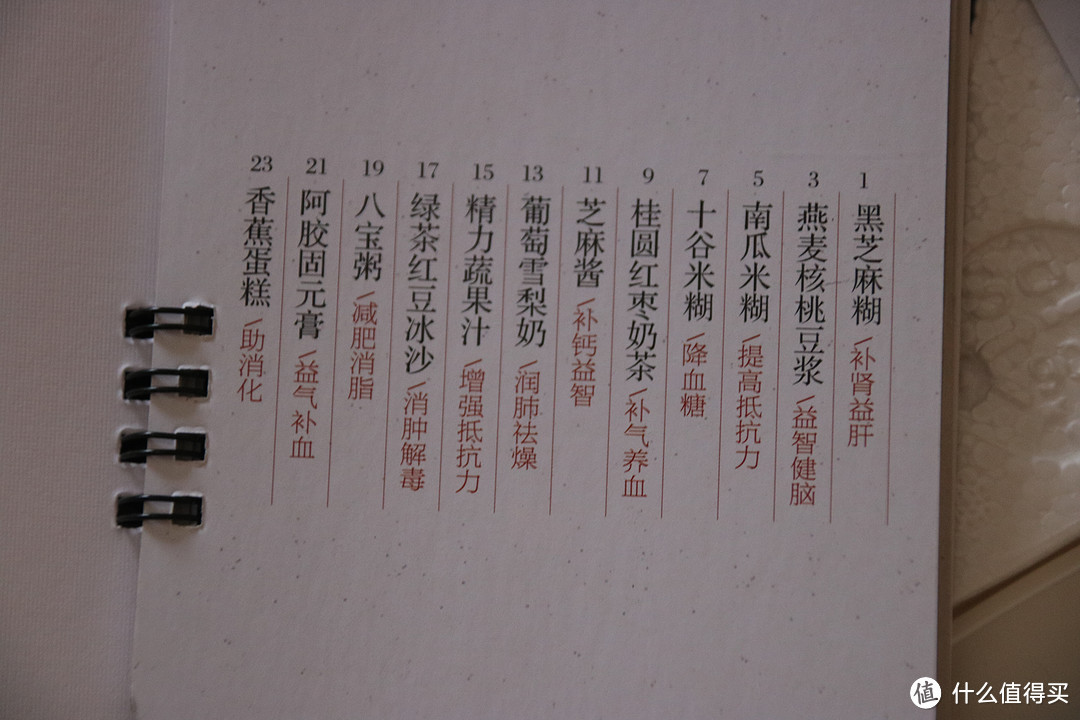 1 黑芝麻糊 \补肾益肝
3 燕麦核桃豆浆 \益智健脑
5 南瓜米糊 \提高抵抗力
7 十谷米糊 \降血糖
9 桂圆红枣奶茶 \补气养血
11 芝麻酱 \补钙益智
13 葡萄雪梨奶 \润肺祛燥
15 精力蔬果汁 \增强抵抗力
17 绿茶红豆冰沙 \消肿解毒
19 八宝粥 \减肥消脂
21 阿胶固元膏 \益气补血
23 香蕉蛋糕 \助消化
值 什么值得买